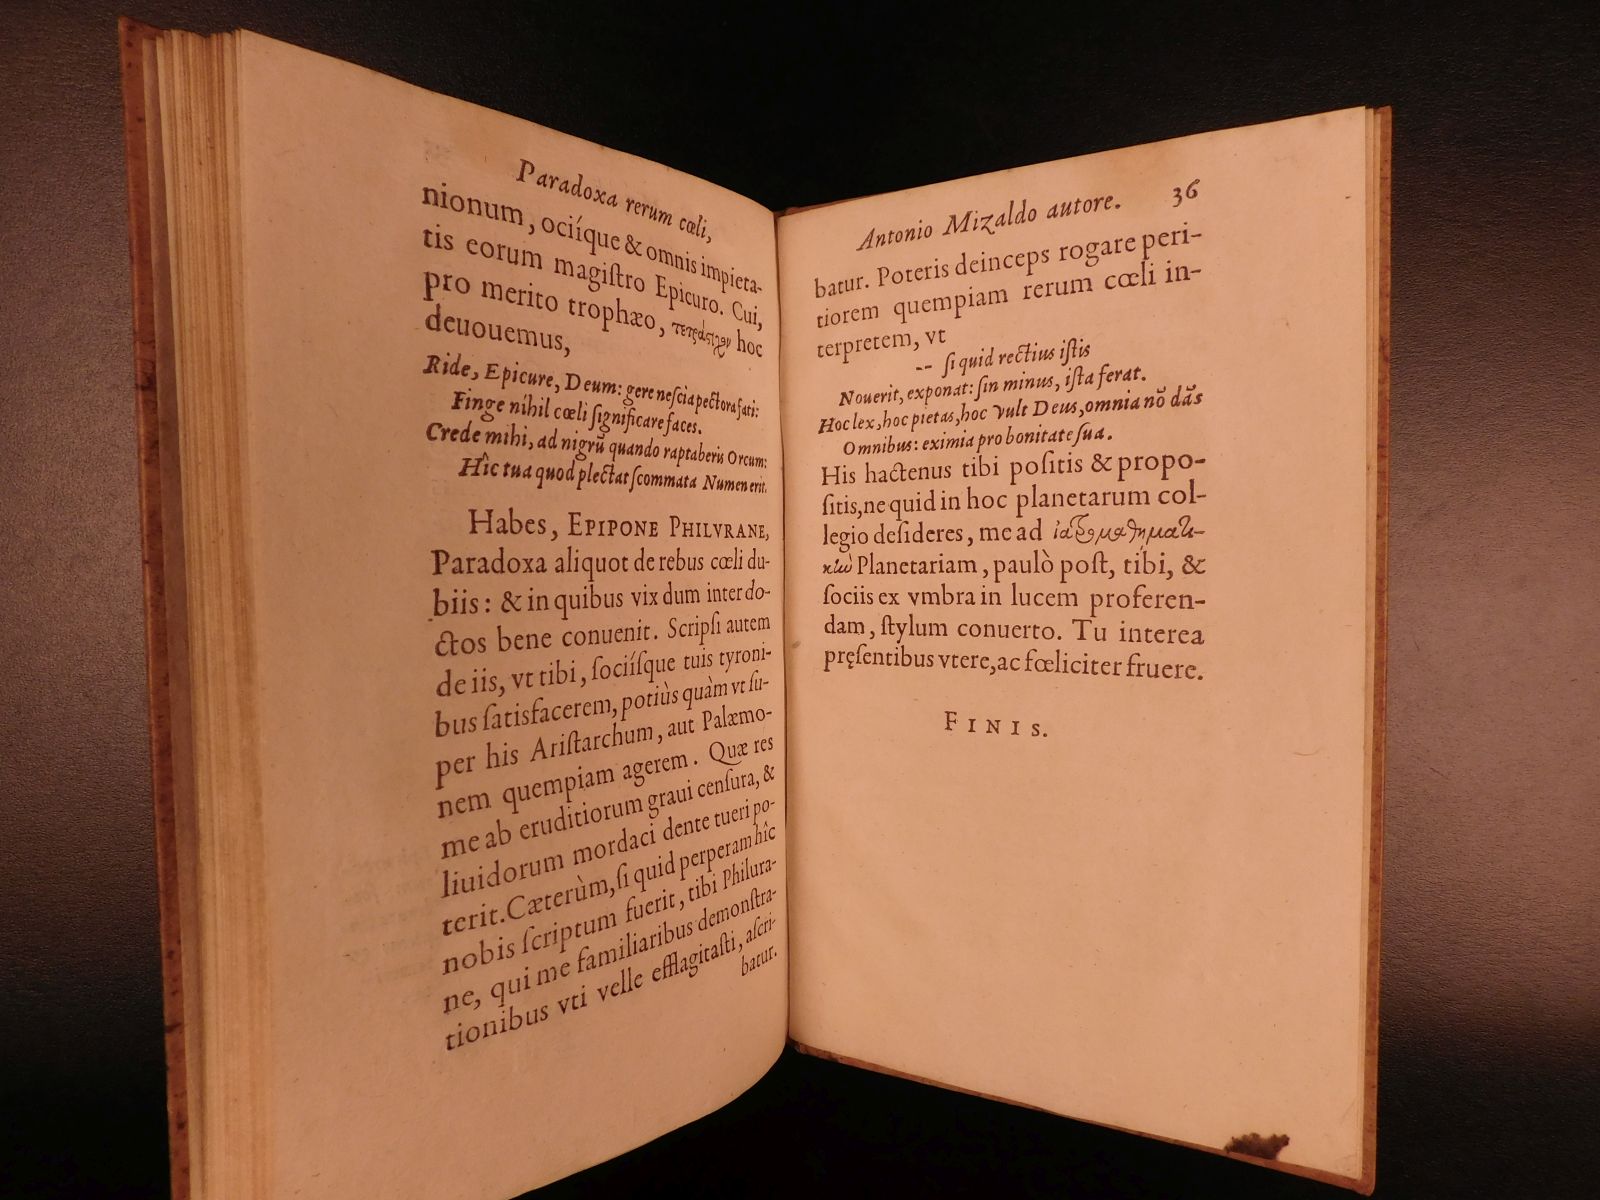 Paradoxa rerum cœli,
nionum, ociíque & omnis impieta-
tis eorum magiſtro Epicuro. Cui,
pro merito trophæo, τετράστιχον hoc
deuouemus,
Ride, Epicure, Deum: gere neſcia pectora fati:
Finge nihil cœli ſignificare faces.
Crede mihi, ad nigrū quando raptaberis Orcum:
Hîc tua quod plectat ſcommata Numen erit.
Habes, EPIPONE PHILVRANE,
Paradoxa aliquot de rebus cœli du-
biis: & in quibus vix dum inter do-
ctos bene conuenit. Scripſi autem
de iis, vt tibi, ſociíſque tuis tyroni-
bus ſatisfacerem, potiùs quàm vt ſu-
per his Ariſtarchum, aut Palæmo-
nem quempiam agerem. Quæ res
me ab eruditiorum graui cenſura, &
liuidorum mordaci dente tueri po-
terit. Cæterùm, ſi quid perperam hîc
nobis ſcriptum fuerit, tibi Philura-
ne, qui me familiaribus demonſtra-
tionibus vti velle efflagitaſti, aſcri-
batur.
Antonio Mizaldo autore. 36
batur. Poteris deinceps rogare peri-
tiorem quempiam rerum cœli in-
terpretem, vt
-- ſi quid rectius iſtis
Nouerit, exponat: ſin minus, iſta ferat.
Hoc lex, hoc pietas, hoc vult Deus, omnia nō dās
Omnibus: eximia pro bonitate ſua.
His hactenus tibi poſitis & propo-
ſitis, ne quid in hoc planetarum col-
legio deſideres, me ad ἰατρομαθηματι-
κὴν Planetariam, paulò poſt, tibi, &
ſociis ex vmbra in lucem proferen-
dam, ſtylum conuerto. Tu interea
pręſentibus vtere, ac fœliciter fruere.
FINIS.